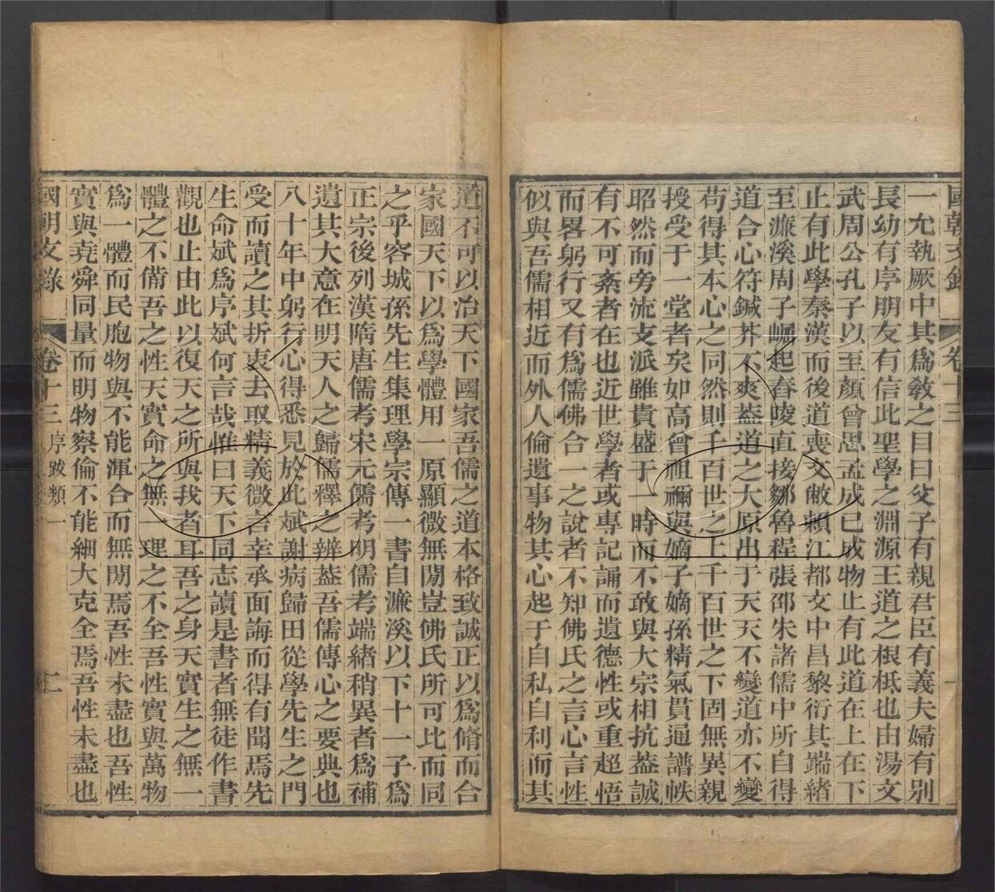 國朝文錄 卷十三
一允執厥中其爲敎之目曰父子有親君臣有義夫婦有別
長幼有序朋友有信此聖學之淵源王道之根柢也由湯文
武周公孔子以至顏曾思孟成己成物止有此道在上在下
止有此學秦漢而後道喪文敝賴江都文中昌黎衍其端緒
至濂溪周子崛起舂陵直接鄒魯程張邵朱諸儒中所自得
道合心符鍼芥不爽葢道之大原出于天天不變道亦不變
苟得其本心之同然則千百世之上千百世之下固無異親
授受于一堂者矣如高曾祖禰與嫡子嫡孫精氣貫通譜帙
昭然而旁流支派雖貴盛于一時而不敢與大宗相抗葢誠
有不可紊者在也近世學者或專記誦而遺德性或重超悟
而畧躬行又有爲儒佛合一之說者不知佛氏之言心言性
似與吾儒相近而外人倫遺事物其心起于自私自利而其
道不可以治天下國家吾儒之道本格致誠正以爲脩而合
家國天下以爲學體用一原顯微無閒豈佛氏所可比而同
之乎容城孫先生集理學宗傳一書自濂溪以下十一子爲
正宗後列漢隋唐儒考宋元儒考明儒考端緒稍異者爲補
遺其大意在明天人之歸儒釋之辨葢吾儒傳心之要典也
八十年中躬行心得悉見於此斌謝病歸田從學先生之門
受而讀之其折衷去取精義微言幸承面誨而得有聞焉先
生命斌爲序斌何言哉惟曰天下同志讀是書者無徒作書
觀也止由此以復天之所與我者耳吾之身天實生之無一
體之不備吾之性天實命之無一理之不全吾性實與萬物
爲一體而民胞物與不能渾合而無閒焉吾性未盡也吾性
實與堯舜同量而明物察倫不能細大克全焉吾性未盡也
國朝文錄 卷十三 序跋類一 二